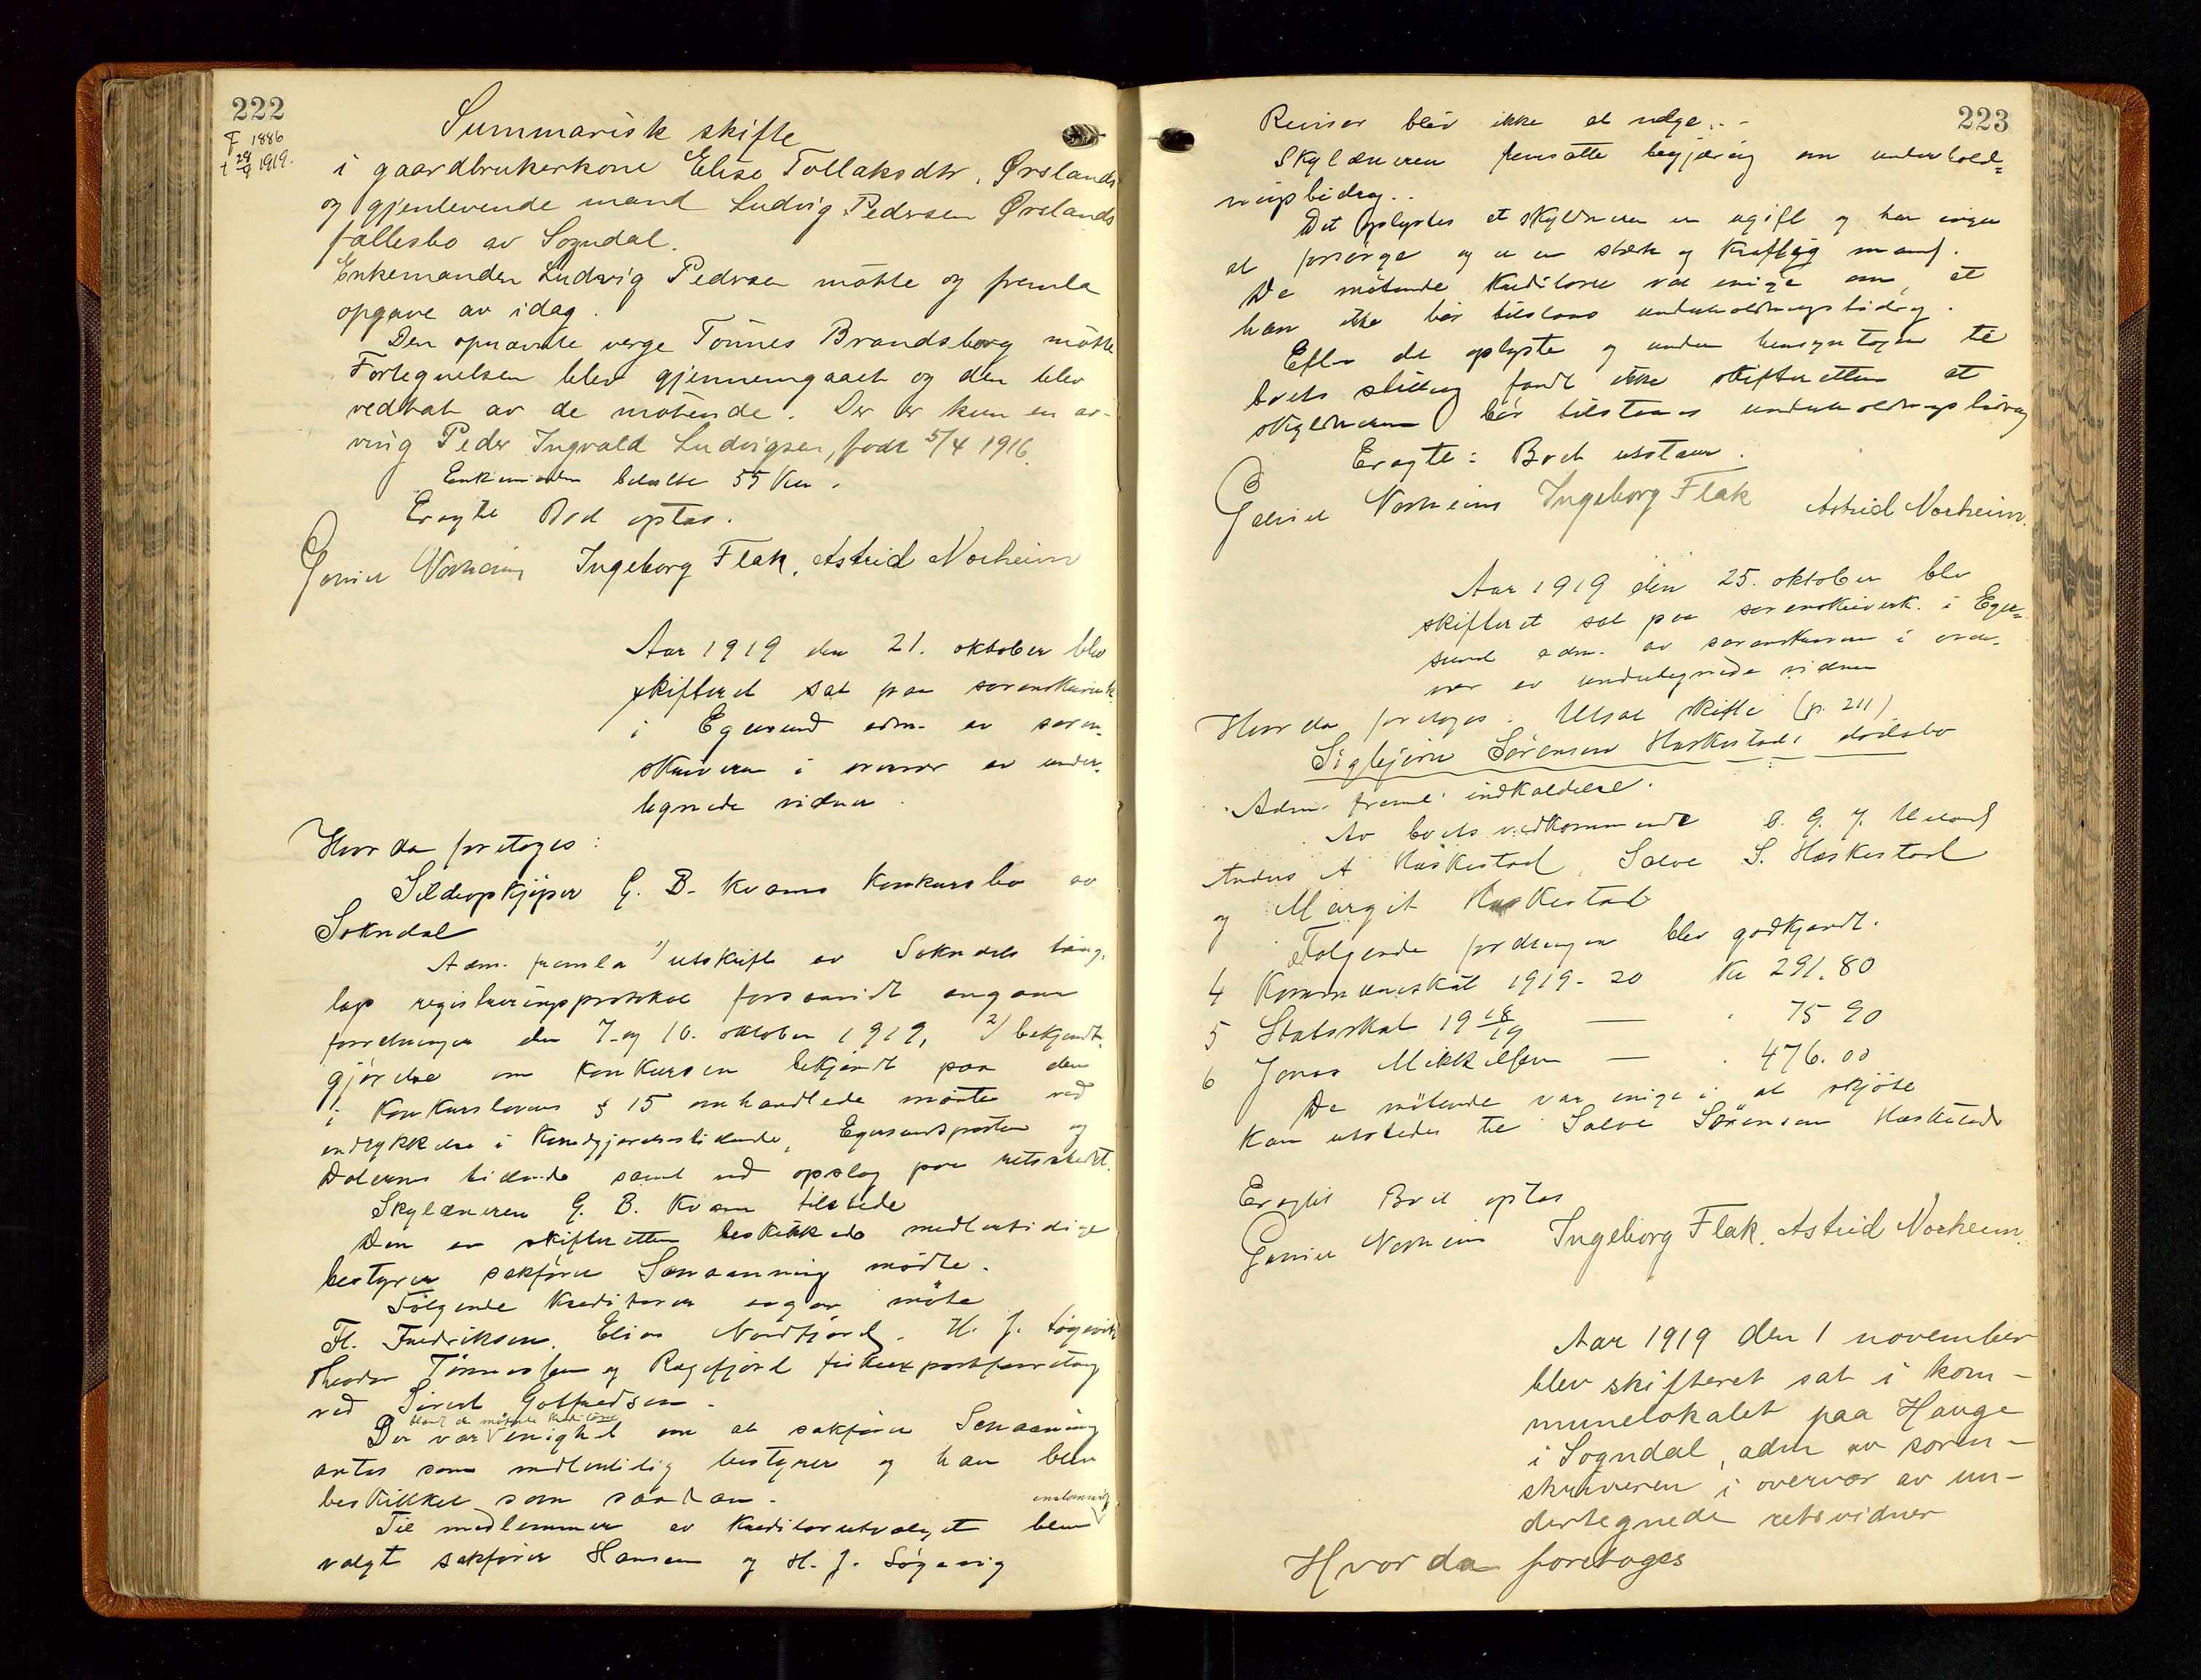 222
F 1886
† 29/9 1919.
Summarisk skifte
i gaardbrukerkone Elise Tollaksdtr. Ørslands
og gjenlevende mand Ludvig Pedersen Ørslands
fællesbo av Sogndal.
Enkemanden Ludvig Pedersen møtte og fremla
opgave av idag.
Den opnævnte verge Tønnes Brandsberg møtte
Fortegnelsen blev gjennemgaaet og den blev
vedtat av de møtende. Der er kun en ar-
ving Peder Ingvald Ludvigsen, født 5/4 1916.
Enkemanden betalte 55 Kr.
Eragte Boet optas.
Norheim Ingeborg Flak, Astrid Norheim
Aar 1919 den 21. oktober blev
skifteret sat paa sorenskriverk.
i Egersund adm. av soren-
skriveren i overvær av under-
tegnede vidner.
Hvor da foretoges:
Sildeopkjøper G. B. Kvams konkursbo av
Sokndal
Adm. fremla 1) utskrift av Sokndals ting-
lags registreringsprotokol forsaavidt angaar
forretninger den 7. og 10. oktober 1919, 2) bekjendt-
gjørelse om konkursen bekjendt paa den
i konkurslovens § 15 omhandlede maate ved
indrykkelse i Kundgjørelsestidende, Egersundsposten og
Dalernes tidende samt ved opslag paa retsstedet.
Skyldneren G. B. Kvam tilstede
Den av skifteretten beskikkede midlertidige
bestyrer sakfører Senaanning mødte.
Følgende kreditorer avgav møte
Fl. Fredriksen, Elias Nordfjord, H. J. Løgevik
Theodor Tønnessen og Rægefjord fiskeexportforretning
ved Sivert Gotfredsen.
bland de møtende kreditorer
Der var enighet om at sakfører Senaanning
antas som midlertidig bestyrer og han blev
beskikket som saadan.
enstemmig
Til medlemmer av kreditorutvalget blev
valgt sakfører Hansen og H. J. Løgevig
223
Revisor blev ikke at vælge.
Skyldneren fremsatte begjæring om underhold-
ningsbidrag.
Det oplystes at skyldneren er ugift og har ingen
at forsørge og er en stærk og kraftig mand.
De møtende kreditorer var enige om, at
han ikke bør tilstaaes underholdningsbidrag.
Efter det oplyste og under hensyntagen til
boets stilling fandt ikke skifteretten at
skyldneren bør tilstaaes underholdningsbidrag
Eragte: Boet utstaar.
Norheim Ingeborg Flak Astrid Norheim.
Aar 1919 den 25. oktober blev
skifteret sat paa sorenskriverk. i Eger-
sund adm. av sorenskriveren i over-
vær av undertegnede vidner
Hvor da foretoges. Utsat skifte (p. 211)
Sigbjørn Sørensen Haskestads dødsbo
Adm. freml. indkaldelse.
Av boets vedkommende O. G. J. Ueland
Anders A Haskestad, Salve S. Haskestad
og Margit Haskestad
Følgende fordringer blev godkjendt.
4 Kommuneskat 1919-20 Kr 291.80
5 Statsskat 1918/19 — 75 90
6 Jonas Mikkelsen — 476.00
De møtende var enige i at skjøte
kan utstedes til Salve Sørensen Haskestad
Eragtet Boet optas
Norheim Ingeborg Flak. Astrid Norheim.
Aar 1919 den 1 november
blev skifteret sat i kom-
munelokalet paa Hauge
i Sogndal, adm av soren-
skriveren i overvær av un-
dertegnede retsvidner
Hvor da foretoges